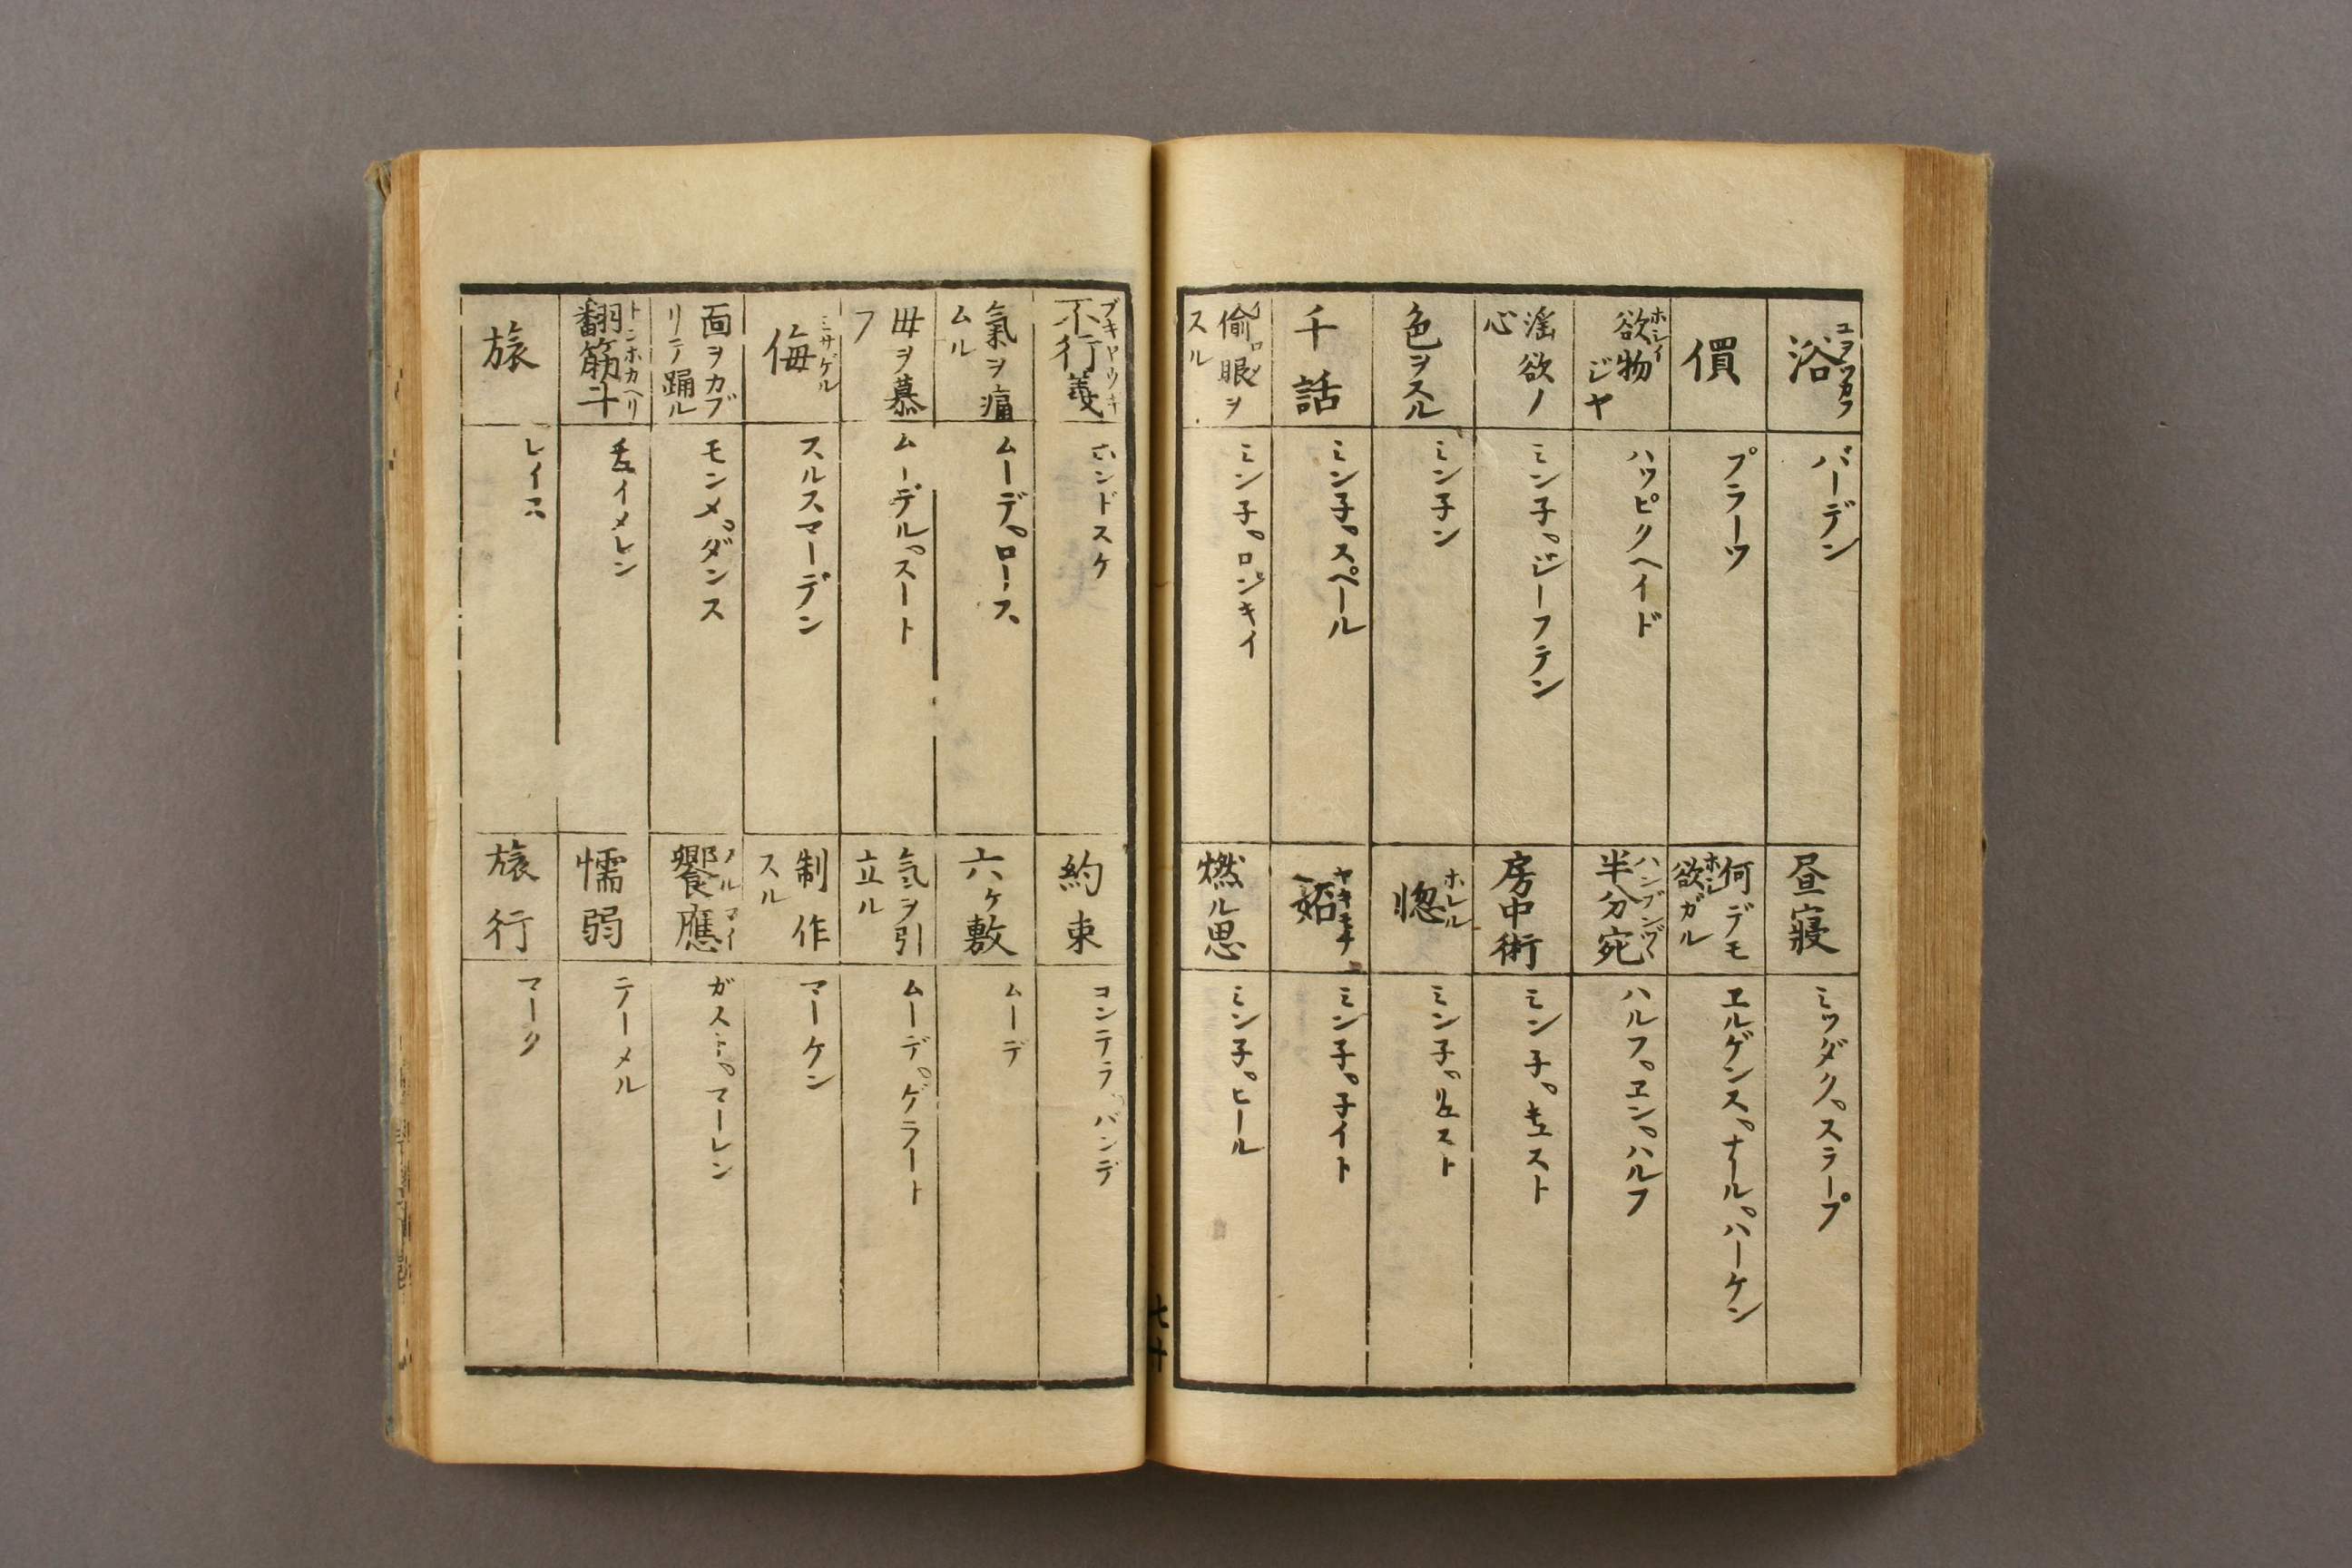 浴 ユヲツカフ
バーデン
價
プラーツ
欲物 ホシイ
ジヤ
ハツピクヘイド
淫欲ノ
心
ミン子。ドリーフテン
色ヲスル
ミン子ン
千話
ミン子。スペール
偷眼ヲ
スル
ミン子。ロンキイ
昼寝
ミツダク。スラープ
何デモ
欲ガル ホシ
ヱルゲンス。ナール。ハーケン
半分宛 ハンブンヅヽ
ハルフ。ヱン。ハルフ
房中術
ミン子。キュスト
惚 ホレル
ミン子。リュスト
妬 ヤキモチ
ミン子。子イト
燃ル思
ミン子。ヒール
七十
不行義 ブキヤウギ
ホンドスケ
氣ヲ痛
ムル
ムーデ。ロース
毋ヲ慕
フ
ムーデル。スート
侮 ミサゲル
スルスマーデン
面ヲカブ
リテ踊ル
モンメ。ダンス
翻筋斗 トンホカヘリ
レイス
旅
約束
コンテラ。バンデ
六ヶ敷
ムーデ
氣ヲ引
立ル
ムーデ。ゲラート
制作
スル
マーケン
饗應 フルマイ
ガストマーレン
懦弱
テーメル
旅行
マーク